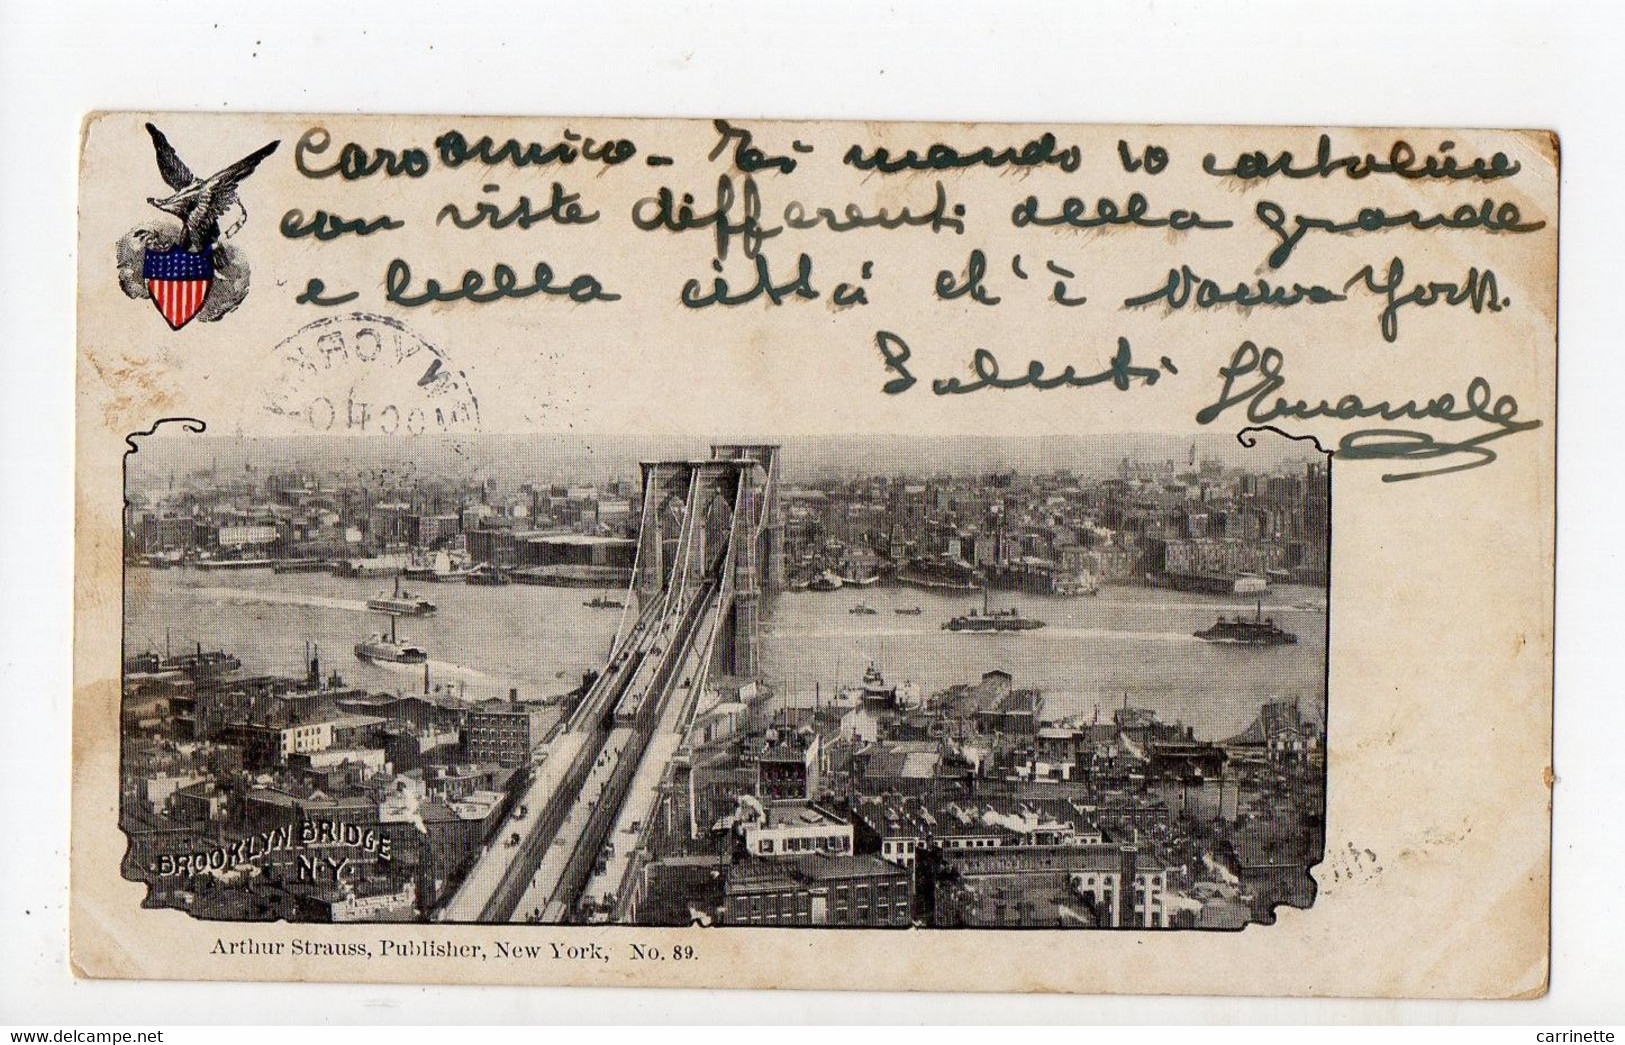 Caro amico - Ti mando 10 cartoline
con viste differenti della grande
e bella città ch'è Nuova York.
Saluti Emanuele
BROOKLYN BRIDGE
N.Y.
Arthur Strauss, Publisher, New York, No. 89.
carrinette